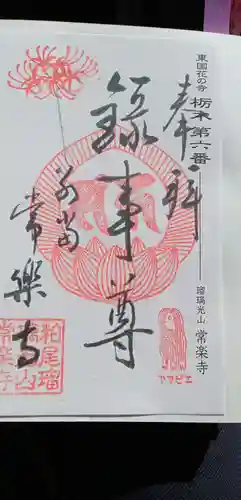 東国花の寺
栃木第六番
瑠璃光山 常楽寺
奉拝
録事尊
別当
常樂寺
アマビエ
粕尾瑠
璃光山
常楽寺